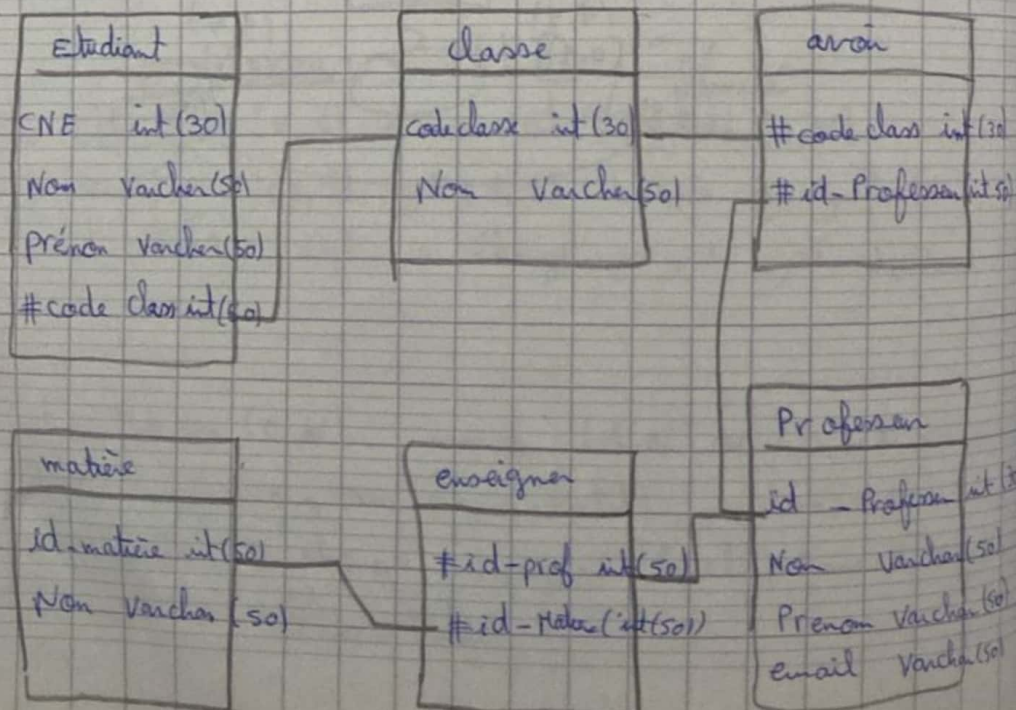 Etudiant
CNE int (30)
Nom Varchar(50)
prénom Varchar(50)
#code Class int(50)
classe
codeclasse int (30)
Nom Varchar(50)
avoir
#code class int(30
#id-Professeur(int 50)
matière
id-matière int(50)
Nom Varchar (50)
enseigner
#id-prof int(50)
#id-Matière(int(50))
Professeur
id - Professeur int(
Nom Varchar(50)
Prenom Varchar(50)
email Varchar(50)